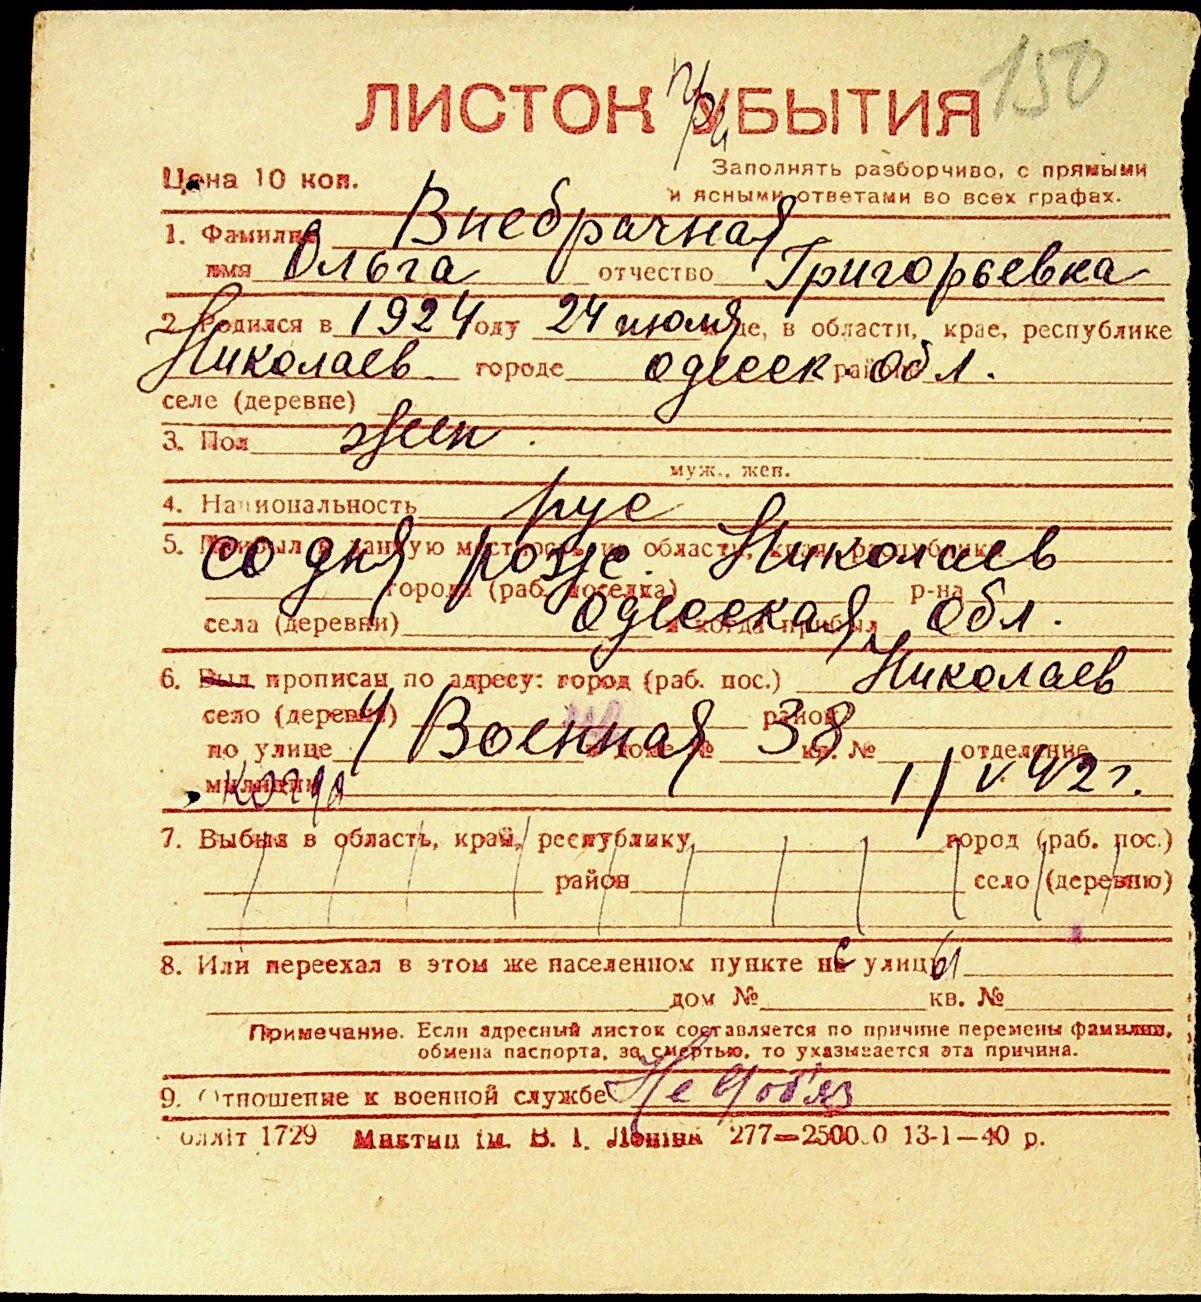 150
ЛИСТОК УБЫТИЯ
при
Цена 10 коп.
Заполнять разборчиво, с прямыми
и ясными ответами во всех графах.
1. Фамилия Внебрачная
имя Ольга отчество Григорьевка
2. Родился в 1924 году 24 июля где, в области, крае, республике
Николаев городе одесск. обл. районе
селе (деревне)
3. Пол жен.
муж., жен.
4. Национальность рус
5. Прибыл в данную местность из области, края, республики
со дня рожд. Николаев
города (раб. поселка) р-на
села (деревни) и когда прибыл
одесская обл.
6. Был прописан по адресу: город (раб. пос.) Николаев
село (деревня) район
по улице 4 Военная в доме № 38 кв. № отделение
милиции когда 1/V 42 г.
7. Выбыл в область, край, республику город (раб. пос.)
район село (деревню)
8. Или переехал в этом же населенном пункте с улицы
дом № кв. №
Примечание. Если адресный листок составляется по причине перемены фамилии,
обмена паспорта, за смертью, то указывается эта причина.
9. Отношение к военной службе
1729 277—2500.0 13-1—40 р.